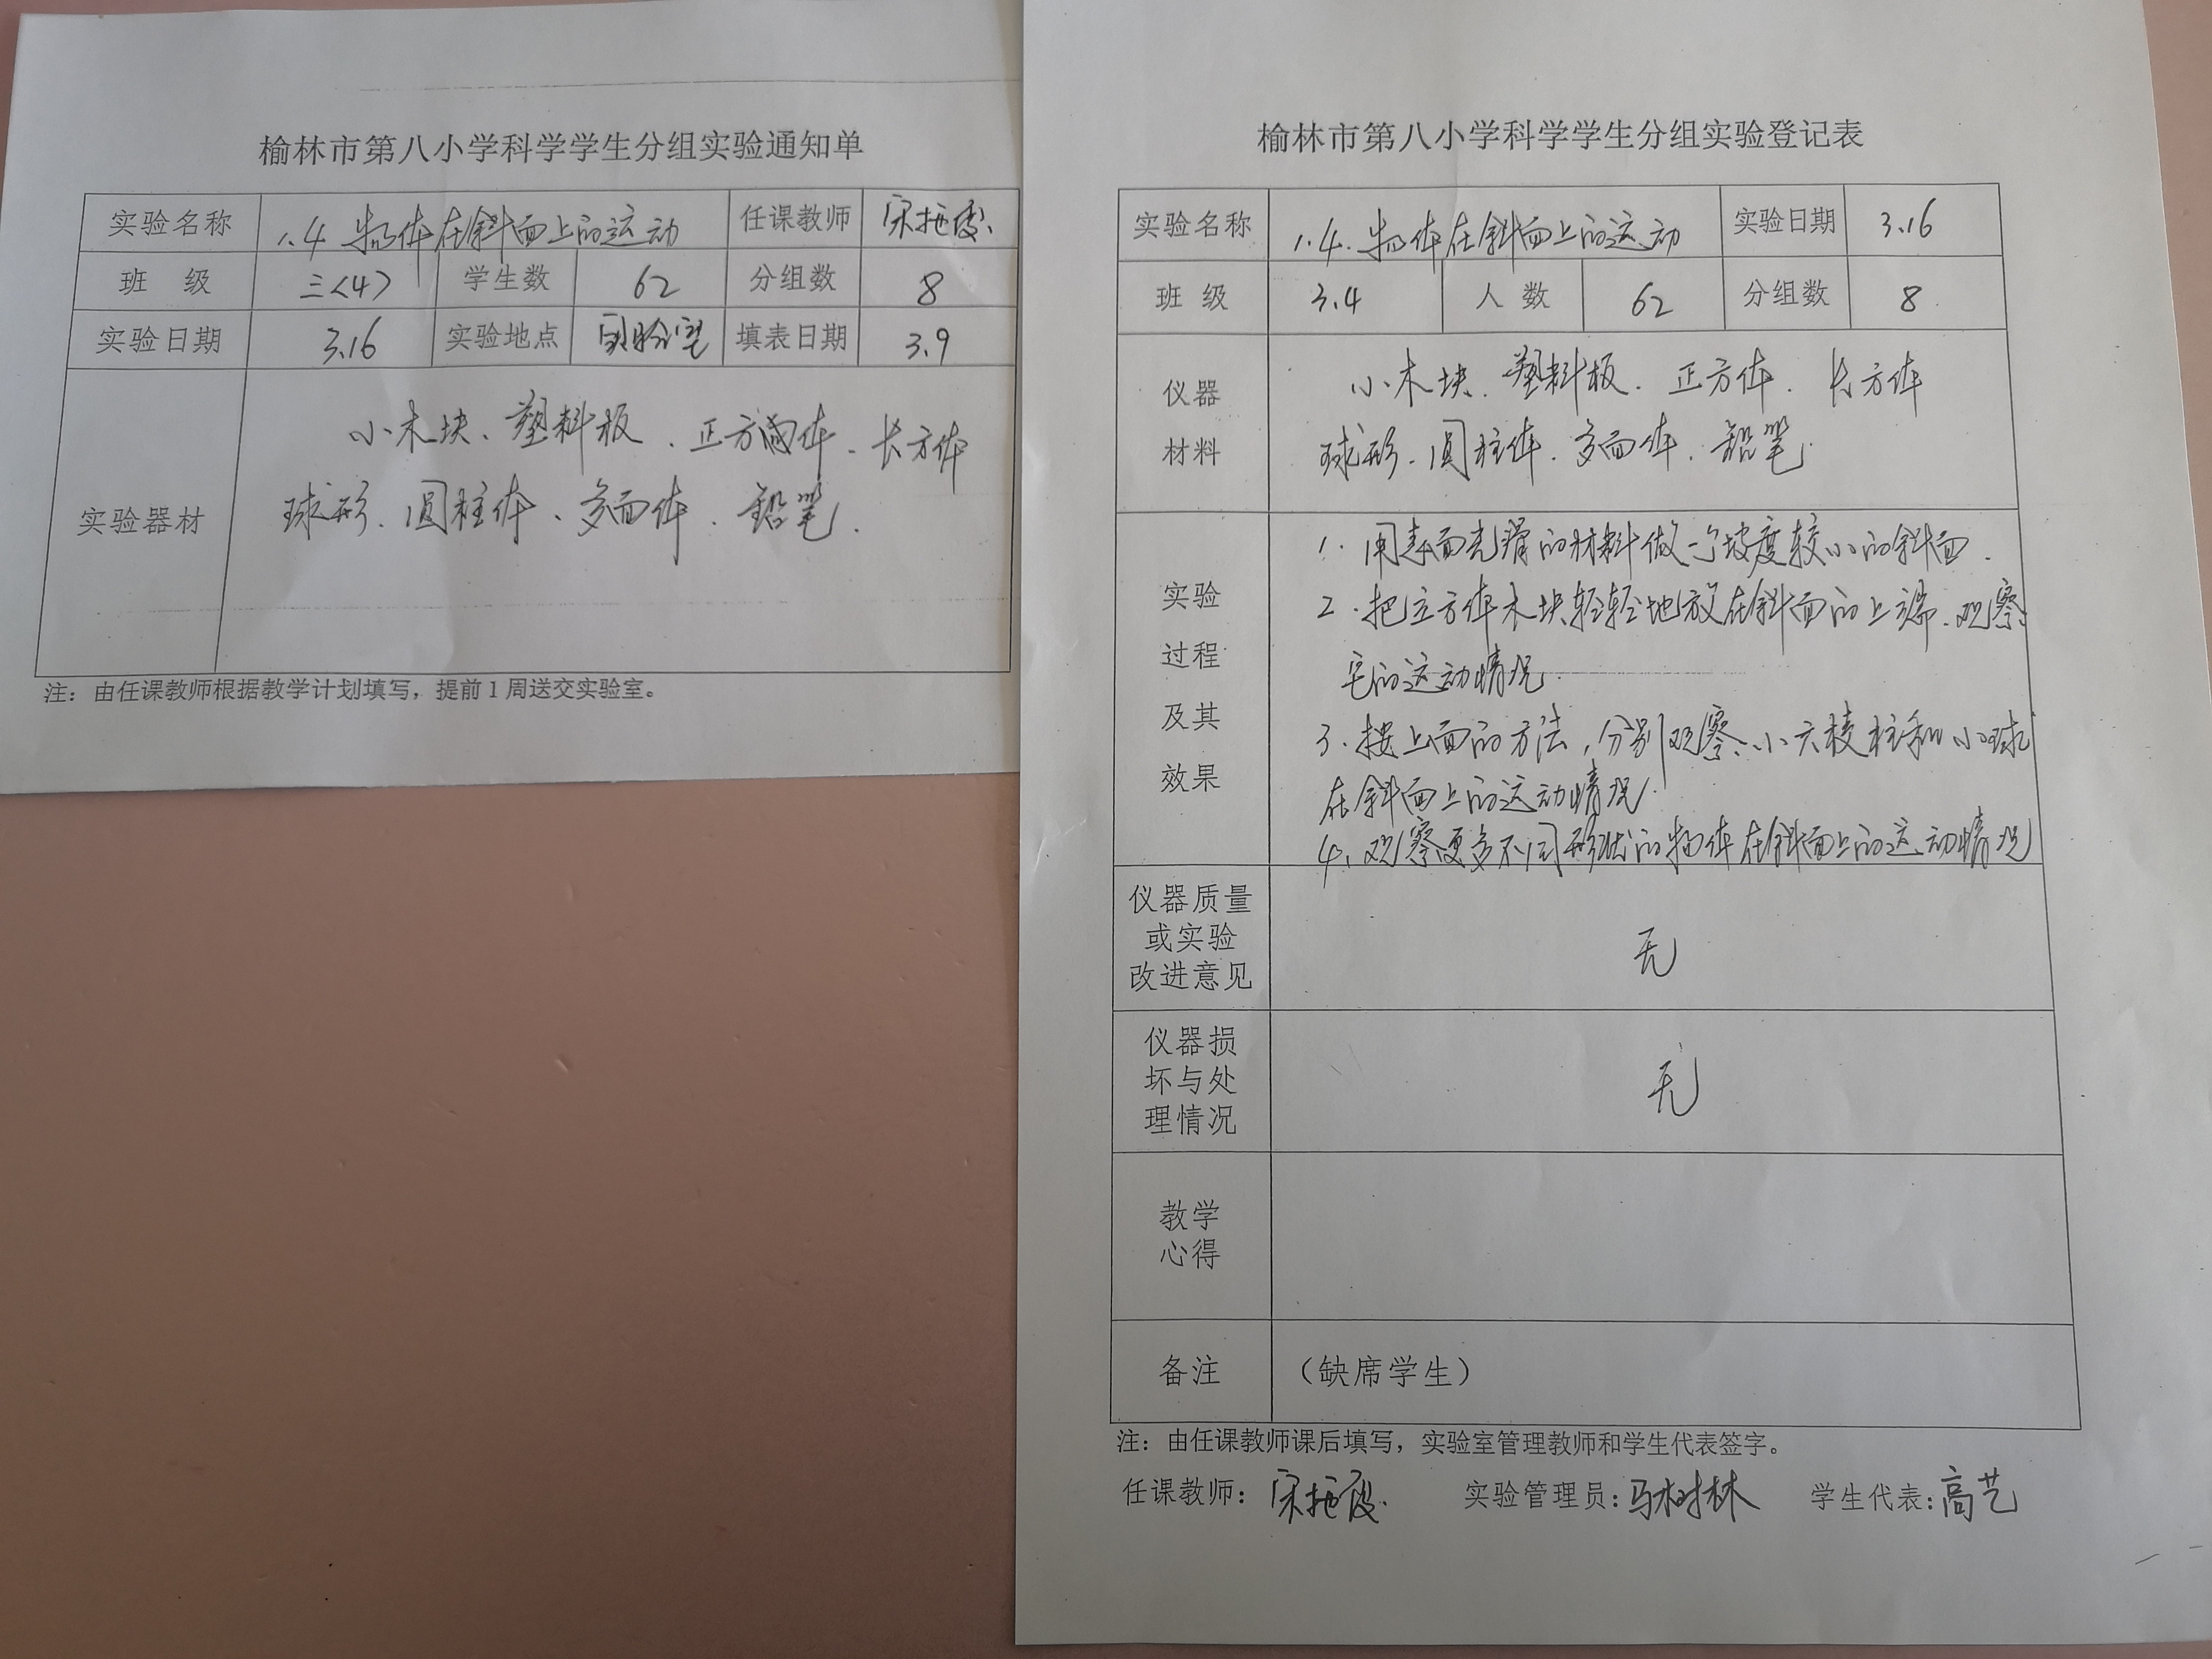 榆林市第八小学科学学生分组实验通知单
实验名称 1.4 物体在斜面上的运动 任课教师 宋拖霞
班 级 三<4> 学生数 62 分组数 8
实验日期 3.16 实验地点 实验室 填表日期 3.9
小木块、塑料板、正方体、长方体
实验器材 球形、圆柱体、多面体、铅笔.
注：由任课教师根据教学计划填写，提前1周送交实验室。
榆林市第八小学科学学生分组实验登记表
实验名称 1.4.物体在斜面上的运动 实验日期 3.16
班 级 3.4 人 数 62 分组数 8
仪器 小木块.塑料板.正方体.长方体
材料 球形.圆柱体.多面体.铅笔.
实验
过程
及其
效果
1.用表面光滑的材料做一个坡度较小的斜面.
2.把立方体木块轻轻地放在斜面的上端.观察
它的运动情况.
3.按上面的方法,分别观察小六棱柱和小球
在斜面上的运动情况.
4.观察更多不同形状的物体在斜面上的运动情况
仪器质量
或实验
改进意见
无
仪器损
坏与处
理情况
无
教学
心得
备注 （缺席学生）
注：由任课教师课后填写，实验室管理教师和学生代表签字。
任课教师：宋拖霞. 实验管理员：马树林 学生代表：高艺